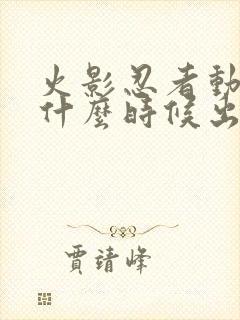 火影忍者動
什麼時候出
賈靖峰